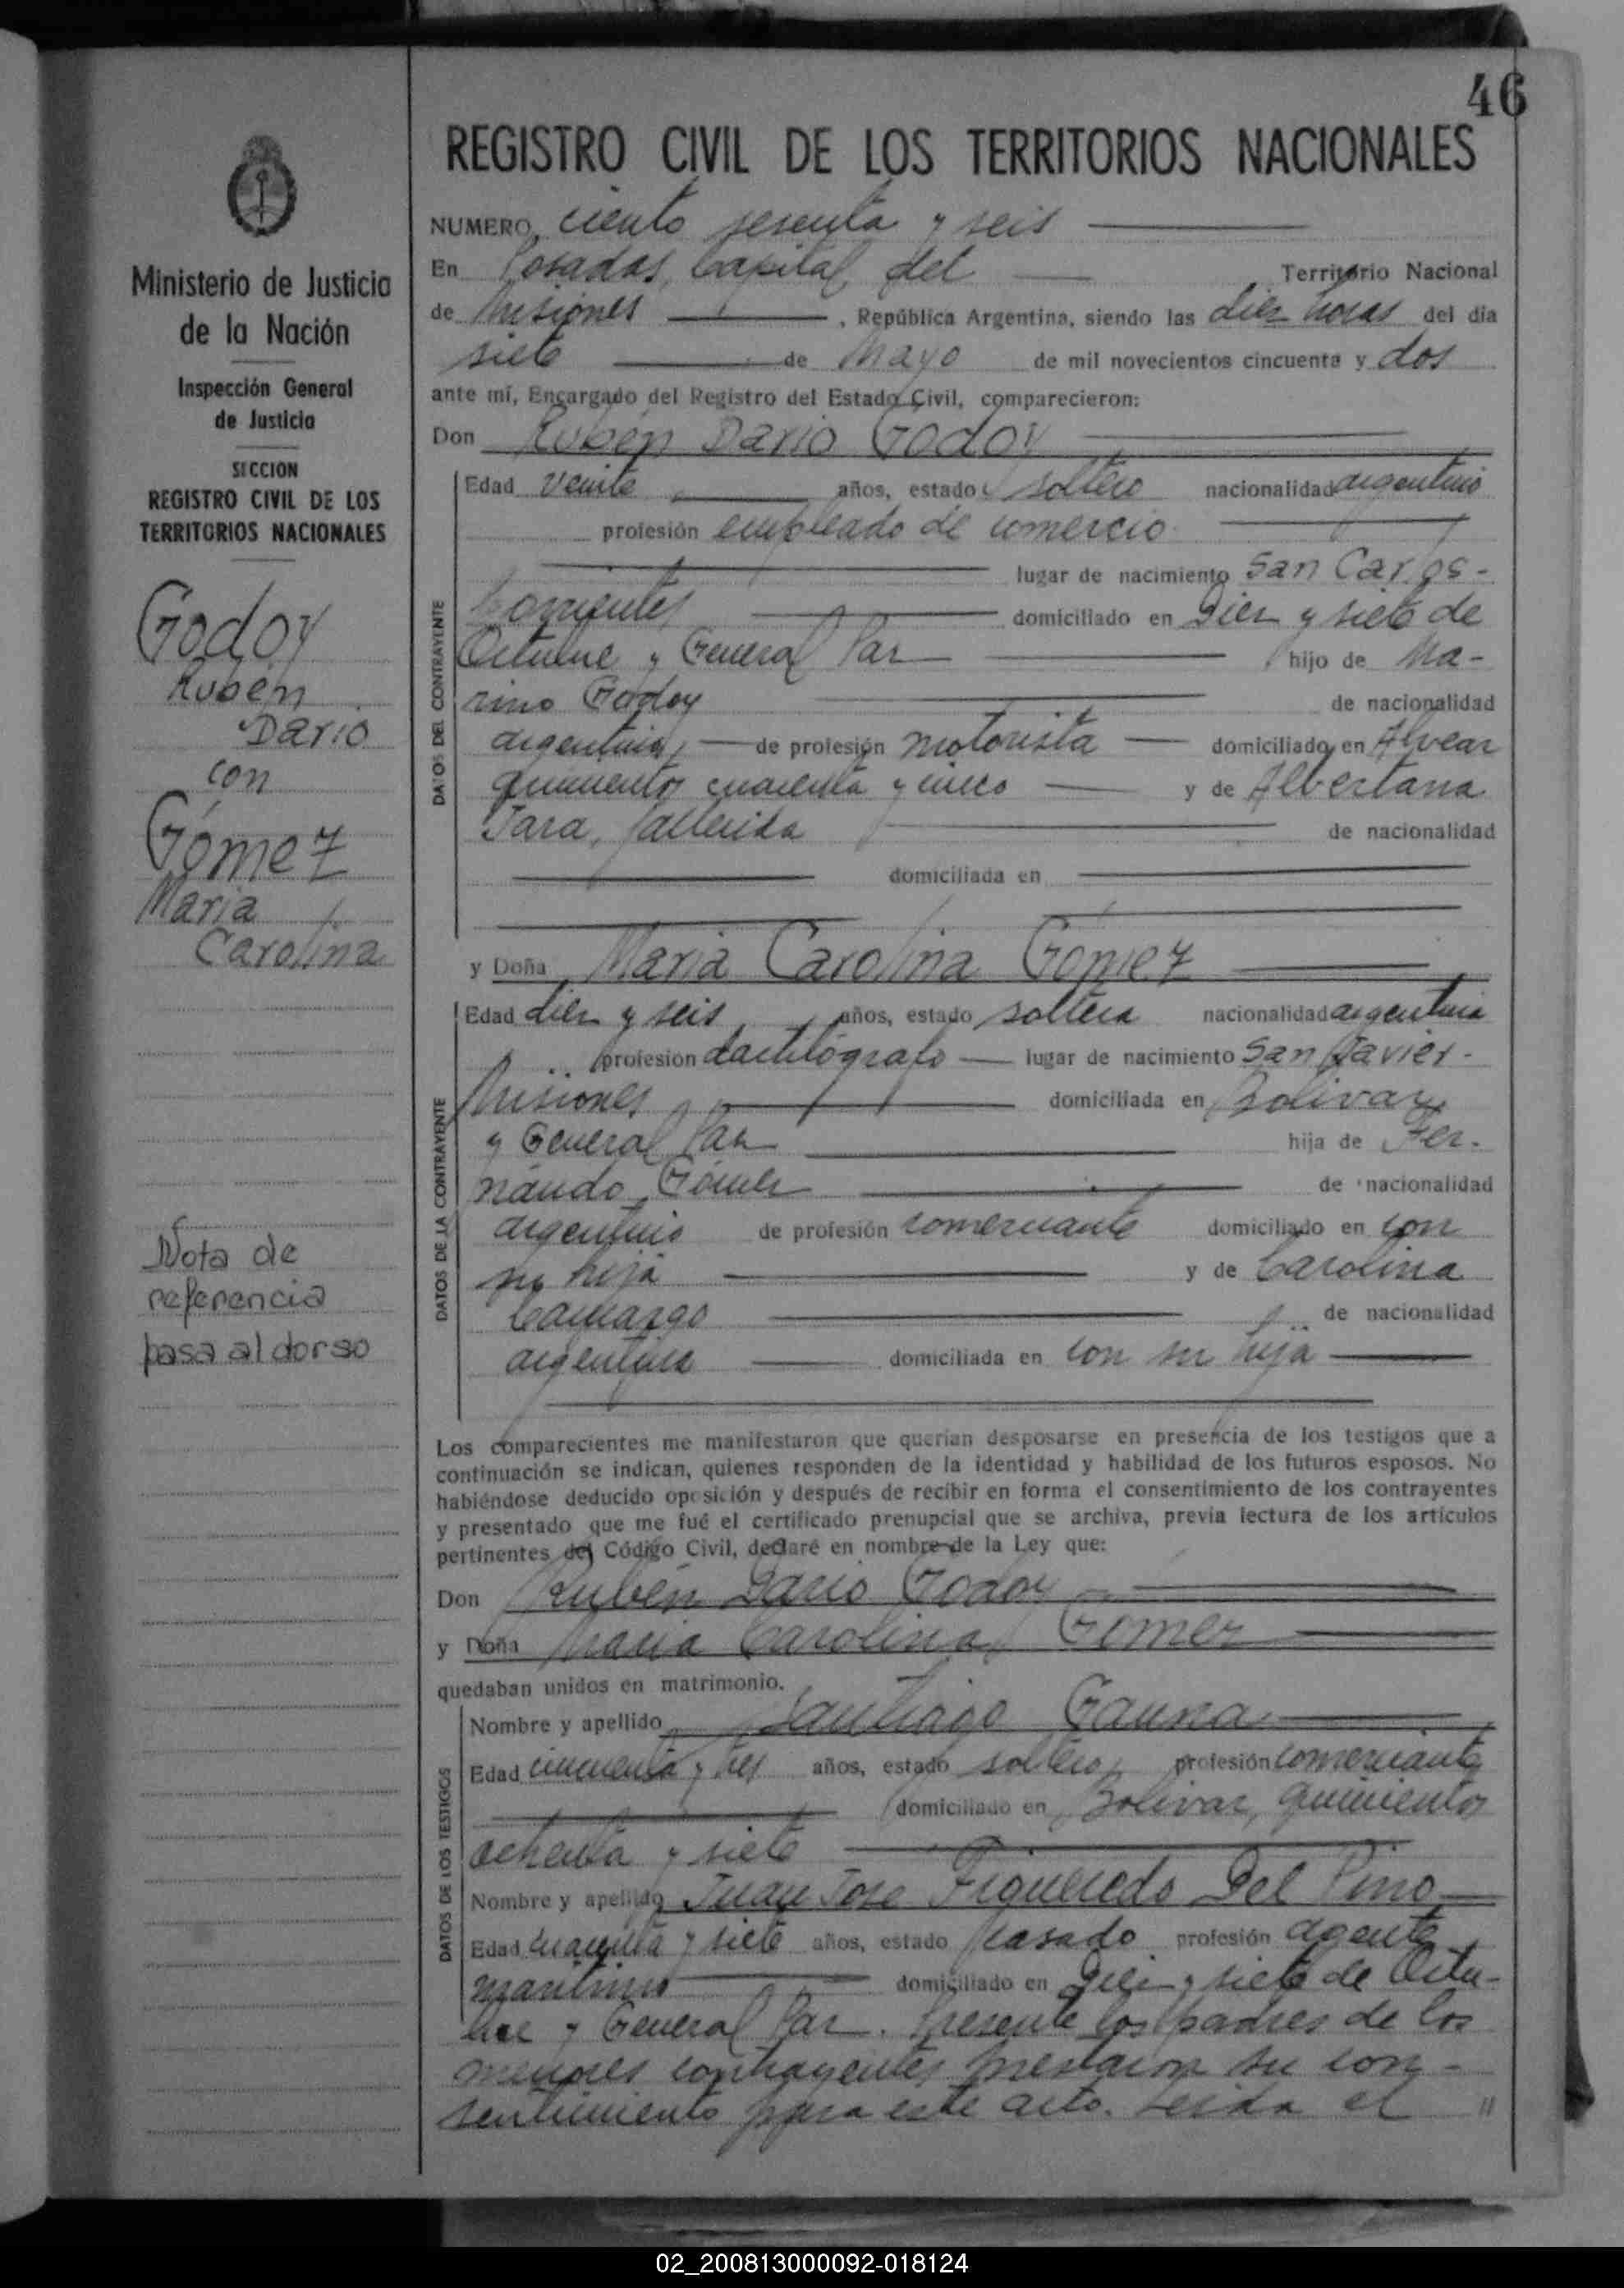 46
REGISTRO CIVIL DE LOS TERRITORIOS NACIONALES
Ministerio de Justicia
de la Nación
Inspección General
de Justicia
SECCION
REGISTRO CIVIL DE LOS
TERRITORIOS NACIONALES
Godoy
Rubén
Dario
con
Gómez
María
Carolina
Nota de
referencia
pasa al dorso
NUMERO ciento sesenta y seis
En Posadas, Capital del Territorio Nacional
de Misiones, República Argentina, siendo las diez horas del día
siete de Mayo de mil novecientos cincuenta y dos
ante mí, Encargado del Registro del Estado Civil, comparecieron:
Don Rubén Dario Godoy
DATOS DEL CONTRAYENTE
Edad veinte años, estado soltero nacionalidad argentino
profesión empleado de comercio
lugar de nacimiento San Carlos-
Corrientes domiciliado en Diez y siete de
Octubre y General Paz hijo de Ma-
rino Godoy de nacionalidad
argentina, de profesión motorista domiciliado en Alvear
quinientos cuarenta y cinco y de Albertana
Jara, fallecida de nacionalidad
domiciliada en
y Doña María Carolina Gómez
DATOS DE LA CONTRAYENTE
Edad diez y seis años, estado soltera nacionalidad argentina
profesión dactilógrafo lugar de nacimiento San Javier-
Misiones domiciliada en Bolivar
y General Paz hija de Fer-
nando Gómez de nacionalidad
argentino de profesión comerciante domiciliado en con
su hija y de Carolina
Camargo de nacionalidad
argentina domiciliada en con su hija
Los comparecientes me manifestaron que querían desposarse en presencia de los testigos que a
continuación se indican, quienes responden de la identidad y habilidad de los futuros esposos. No
habiéndose deducido oposición y después de recibir en forma el consentimiento de los contrayentes
y presentado que me fué el certificado prenupcial que se archiva, previa lectura de los artículos
pertinentes del Código Civil, declaré en nombre de la Ley que:
Don Rubén Dario Godoy
y Doña María Carolina Gómez
quedaban unidos en matrimonio.
DATOS DE LOS TESTIGOS
Nombre y apellido Santiago Gauna
Edad cincuenta y tres años, estado soltero, profesión comerciante
domiciliado en Bolivar, quinientos
ochenta y siete
Nombre y apellido Juan José Figueredo Del Pino
Edad cuarenta y siete años, estado casado profesión agente
marítimo domiciliado en Diez y siete de Octu-
bre y General Paz. Presente los padres de los
menores contrayentes prestaron su con-
sentimiento para este acto. Leida el "
02_200813000092-018124